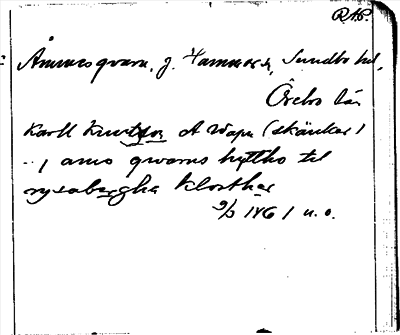 RAP.
Åmmesqvarn, j. Hammars, Sundbo hd,
Örebro län
Karll Knutsson af Wapn (skänker)
.. j amo qwarns hyttho til
rysabergha kloster
9/3 1461 u.o.